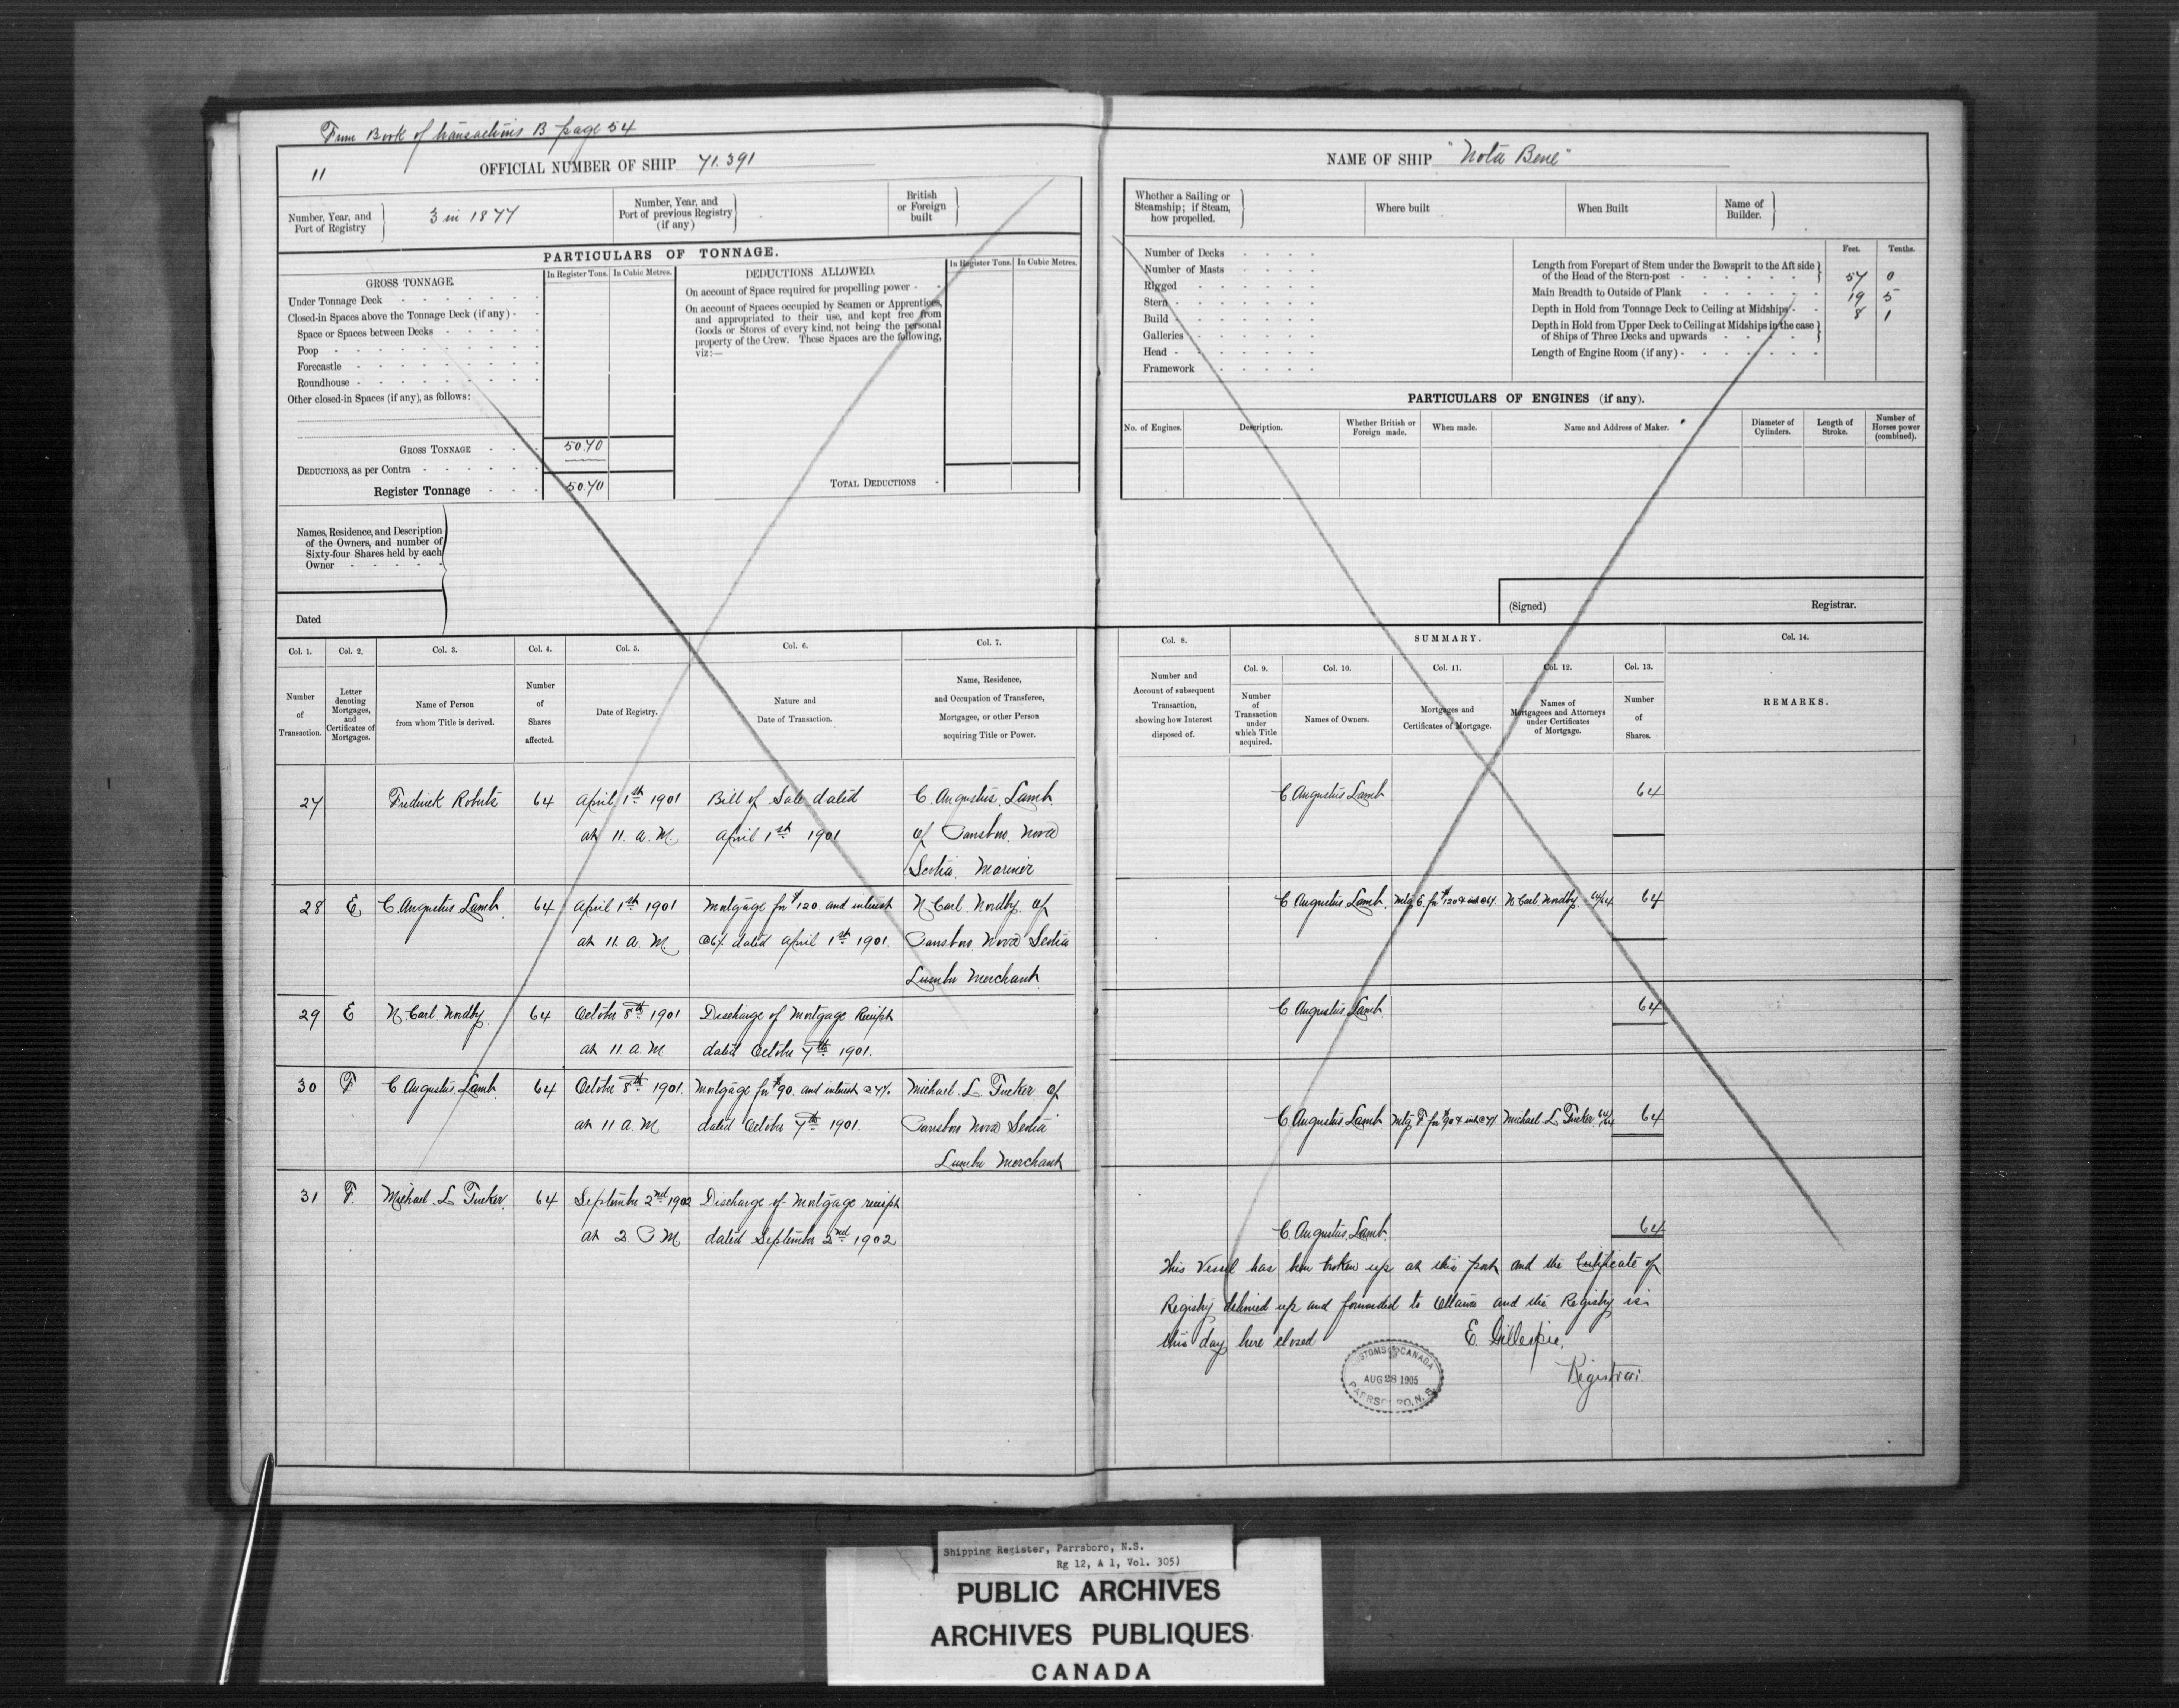 From Book of transactions B page 54
11
OFFICIAL NUMBER OF SHIP 71.391
Number, Year, and Port of Registry
3 in 1877
Number, Year, and Port of previous Registry (if any)
British or Foreign built
PARTICULARS OF TONNAGE.
GROSS TONNAGE.
In Register Tons. In Cubic Metres.
Under Tonnage Deck
Closed-in Spaces above the Tonnage Deck (if any)
Space or Spaces between Decks
Poop
Forecastle
Roundhouse
Other closed-in Spaces (if any), as follows:
GROSS TONNAGE 50.70
DEDUCTIONS, as per Contra
Register Tonnage 50.70
DEDUCTIONS ALLOWED.
In Register Tons. In Cubic Metres.
On account of Space required for propelling power
On account of Spaces occupied by Seamen or Apprentices,
and appropriated to their use, and kept free from
Goods or Stores of every kind, not being the personal
property of the Crew. These Spaces are the following,
viz:—
TOTAL DEDUCTIONS
Names, Residence, and Description
of the Owners, and number of
Sixty-four Shares held by each
Owner
Dated
NAME OF SHIP "Nota Bene"
Whether a Sailing or Steamship; if Steam, how propelled.
Where built
When Built
Name of Builder.
Number of Decks
Number of Masts
Rigged
Stern
Build
Galleries
Head
Framework
Feet. Tenths.
Length from Forepart of Stem under the Bowsprit to the Aft side
of the Head of the Stern-post 57 0
Main Breadth to Outside of Plank 19 5
Depth in Hold from Tonnage Deck to Ceiling at Midships 8 1
Depth in Hold from Upper Deck to Ceiling at Midships in the case
of Ships of Three Decks and upwards
Length of Engine Room (if any)
PARTICULARS OF ENGINES (if any).
No. of Engines.
Description.
Whether British or Foreign made.
When made.
Name and Address of Maker.
Diameter of Cylinders.
Length of Stroke.
Number of Horses power (combined).
(Signed) Registrar.
Col. 1.
Number of Transaction.
Col. 2.
Letter denoting Mortgages, and Certificates of Mortgages.
Col. 3.
Name of Person from whom Title is derived.
Col. 4.
Number of Shares affected.
Col. 5.
Date of Registry.
Col. 6.
Nature and Date of Transaction.
Col. 7.
Name, Residence, and Occupation of Transferee, Mortgagee, or other Person acquiring Title or Power.
Col. 8.
Number and Account of subsequent Transaction, showing how Interest disposed of.
SUMMARY.
Col. 9.
Number of Transaction under which Title acquired.
Col. 10.
Names of Owners.
Col. 11.
Mortgages and Certificates of Mortgage.
Col. 12.
Names of Mortgagees and Attorneys under Certificates of Mortgage.
Col. 13.
Number of Shares.
Col. 14.
REMARKS.
27 Fredrick Roberts 64 April 1st 1901 Bill of Sale dated C. Augustus Lamb C Augustus Lamb 64
at 11. a. M. April 1st 1901 of Parrsboro Nova
Scotia Mariner
28 E C Augustus Lamb 64 April 1st 1901 Mortgage for $120. and interest N. Carl. Nordby of C Augustus Lamb Mtg E for $120 & int @6% N. Carl. Nordby 64/64 64
at 11. a. M @6% dated April 1st 1901. Parrsboro Nova Scotia
Lumber Merchant
29 E N. Carl. Nordby 64 October 8th 1901 Discharge of Mortgage Receipt C Augustus Lamb 64
at 11. a. M dated October 7th 1901.
30 F C Augustus Lamb 64 October 8th 1901. Mortgage for $90. and interest @ 7% Michael L Tucker of
at 11 a. M dated October 7th 1901. Parrsboro Nova Scotia C Augustus Lamb Mtg F for $90 & int @ 7% Michael L Tucker 64/64 64
Lumber Merchant
31 F. Michael L Tucker 64 September 2nd 1902 Discharge of Mortgage receipt
at 2 P M dated September 2nd 1902 C. Augustus Lamb 64
This Vessel has been broken up at this port and the Certificate of
Registry delivered up and forwarded to Ottawa and the Registry is
this day here closed E. Gillespie,
Registrar.
CUSTOMS CANADA
AUG 28 1905
PARRSBORO, N.S.
Shipping Register, Parrsboro, N.S.
Rg 12, A 1, Vol. 305)
PUBLIC ARCHIVES
ARCHIVES PUBLIQUES
CANADA